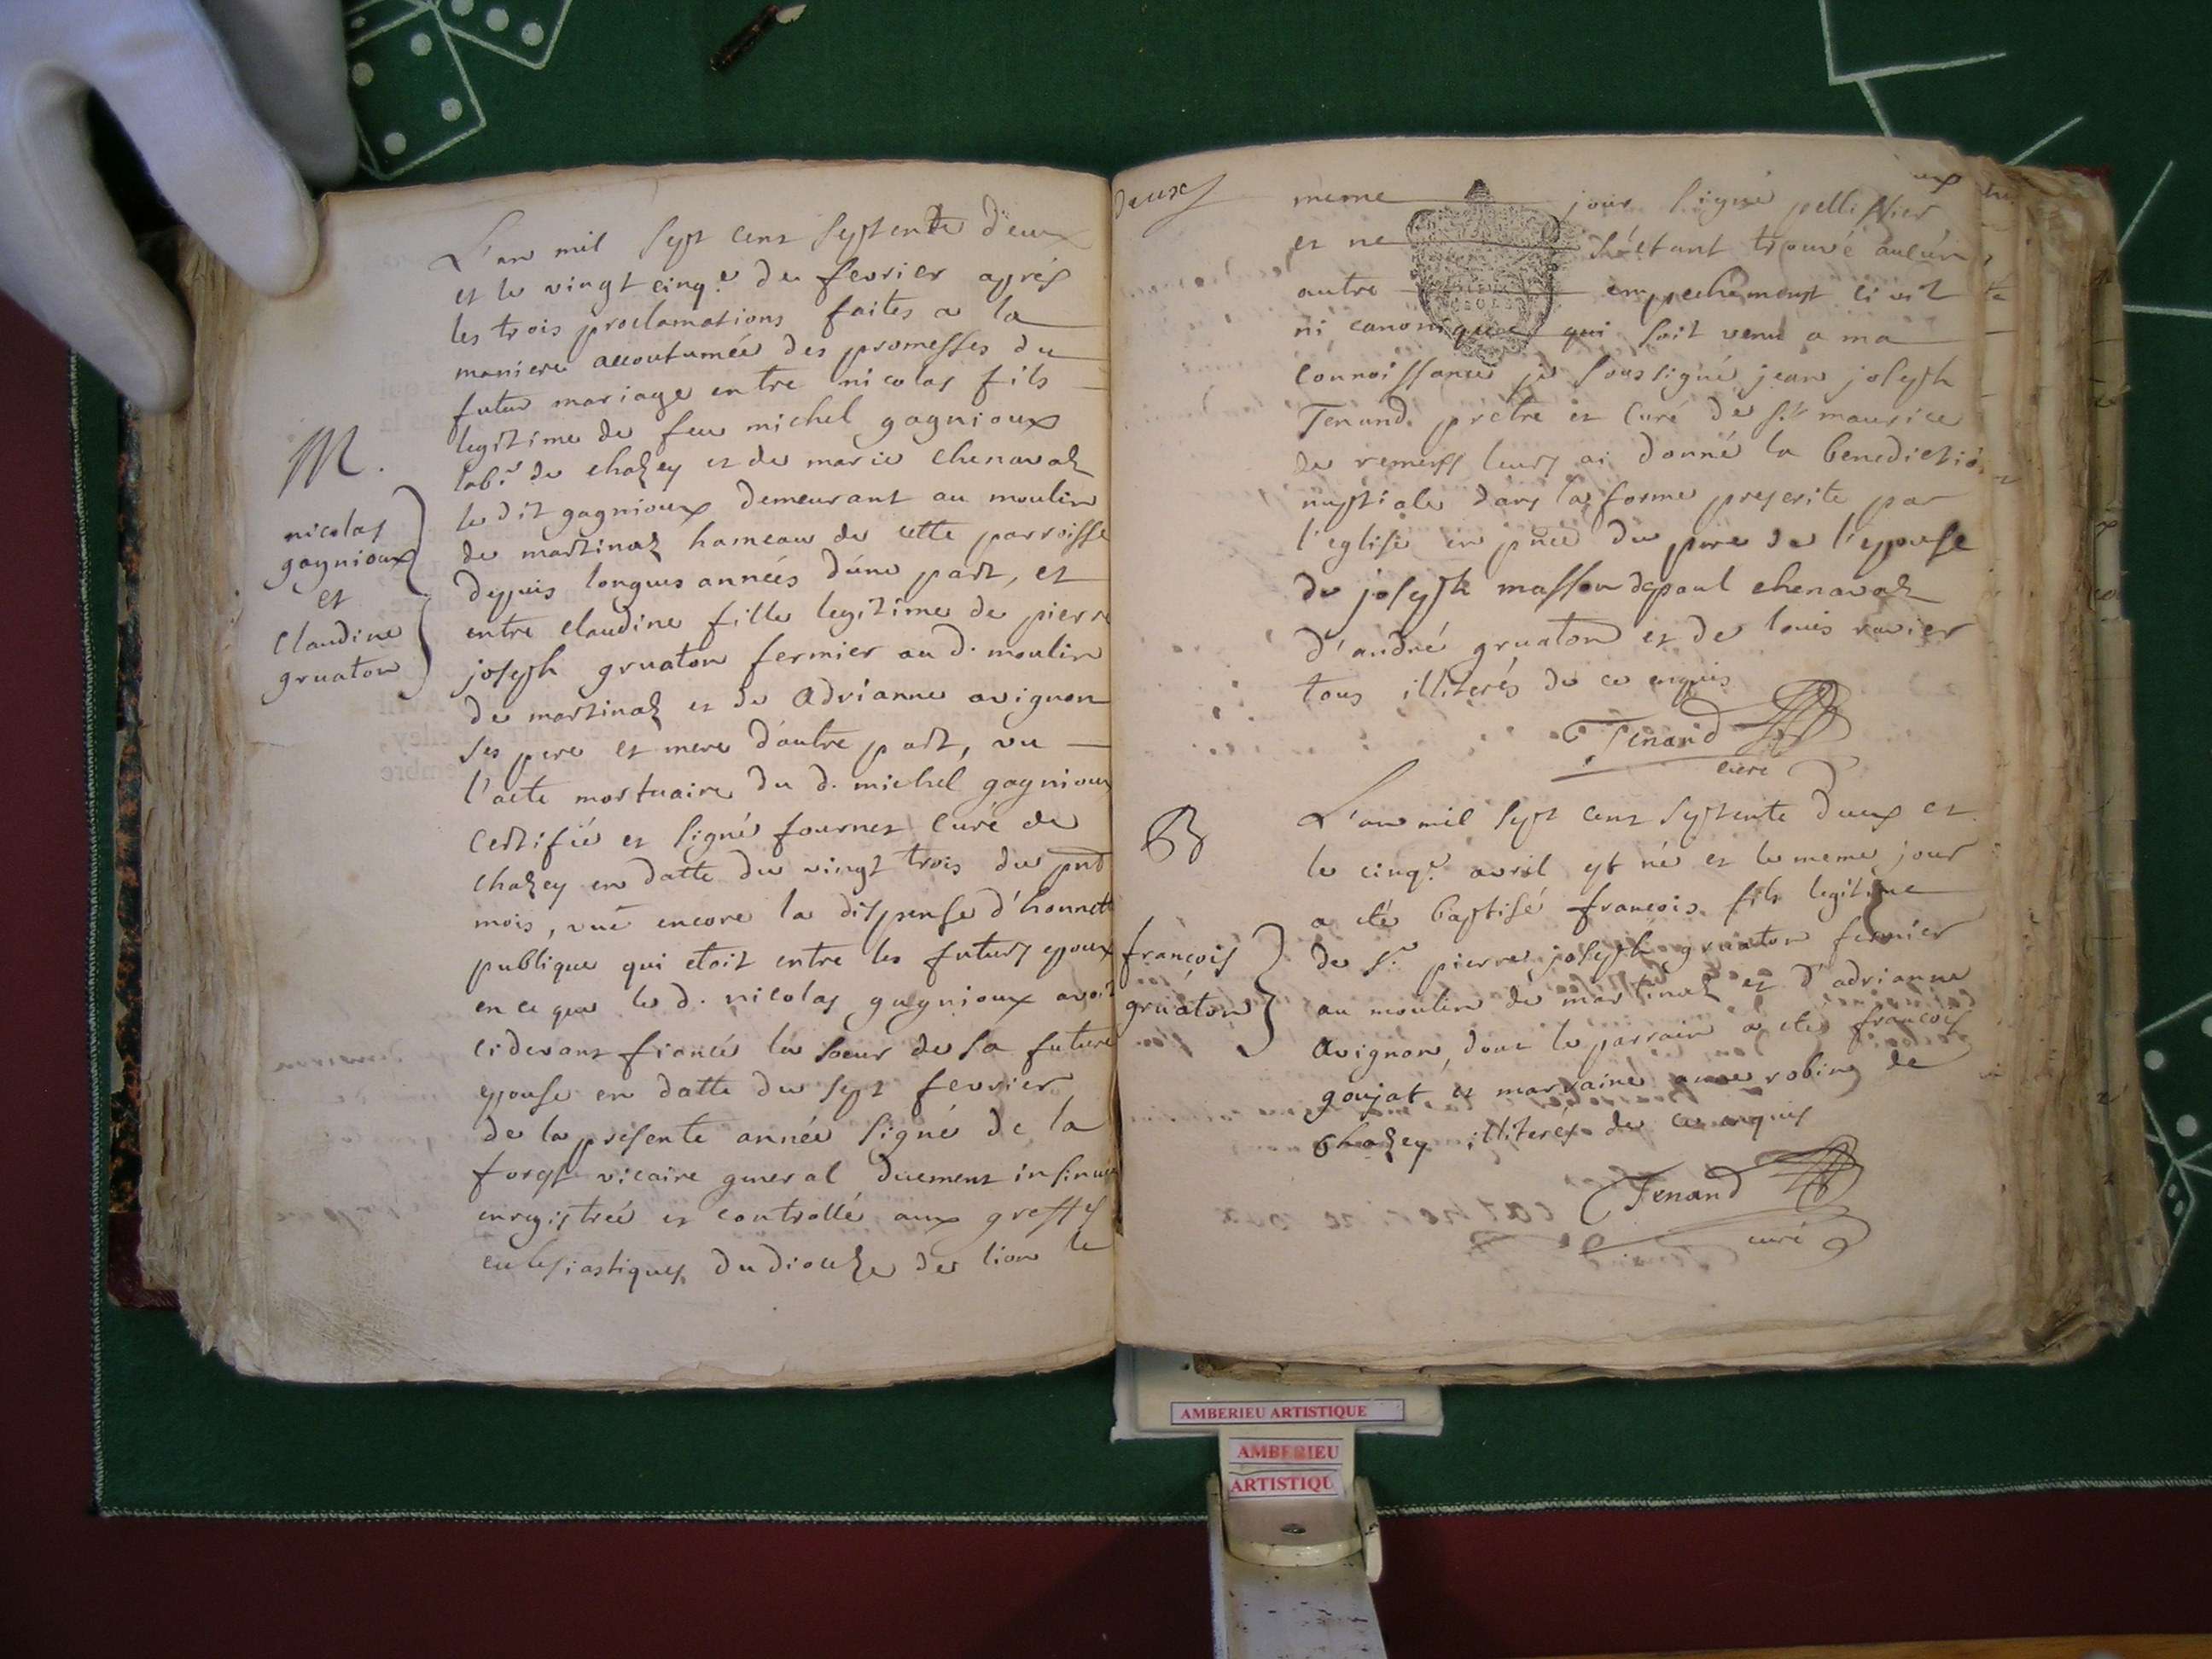 L'an mil sept cent septente deux
et le vingt cinq.e de fevrier aprés
les trois proclamations faites a la
maniere accoutumée des promesses du
futur mariage entre nicolas fils
legitime de feu michel gagnioux
lab.r de chazey et de marie chenavaz
le dit gagnioux demeurant au moulin
de martinaz hameau de cette parroisse
depuis longues années d'une part, et
entre claudine fille legitime de pierre
joseph gruaton fermier au d. moulin
de martinaz et de Adrianne avignon
ses pere et mere d'autre part, vu
l'acte mortuaire du d. michel gagnioux
certifié et signé fournet curé de
chazey en datte du vingt trois du pnt
mois, vuë encore la dispense d'honnete
publique qui etoit entre les futurs epoux
en ce que le d. nicolas gagnioux avoit
cidevant fiancé la soeur de sa future
epouse en datte du sept fevrier
de la presente année signé de la
forest vicaire general duement insinuée
enregistreé et controllé aux greffes
eclesiastiques du diocèze de lion le
M.
nicolas
gagnioux
et
claudine
gruaton
deux
meme jour signé pellissier
et ne s'etant trouvé aucun
autre empechement civil
ni canonique qui soit venu a ma
connoissance je soussigné jean joseph
Tenand prètre et curé de st maurice
de remens leurs ai donné la benedictio
nuptiale dans la forme prescrite par
l'eglise en pnce du pere de l'epouse
de joseph masson depaul chenavaz
d'andré gruaton et de louis ravier
tous illiterés de ce enquis
Tenand
curé
B
françois
gruaton
L'an mil sept cent septente deux et
le cinq.e avril est né et le meme jour
a eté baptisé francois fils legitime
de s.r pierre joseph gruaton fermier
au moulin de martinaz et d'adrianne
avignon, dont le parrain a eté francois
goujat et marraine anne robin de
chazey illiterés de ce enquis
Tenand
curé
AMBERIEU ARTISTIQUE
AMBERIEU
ARTISTIQU